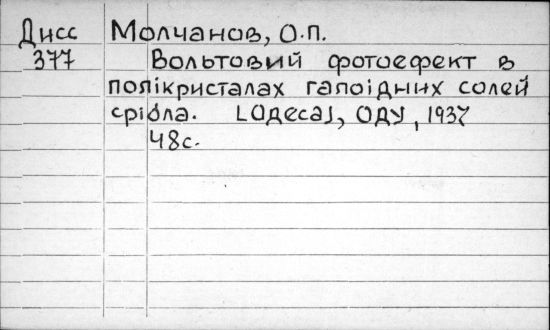 Дисс Молчанов, О.П.
377 Вольтовий фотоефект в
полікристалах галоїдних солей
срібла. [Одеса], ОДУ, 1937
48с.